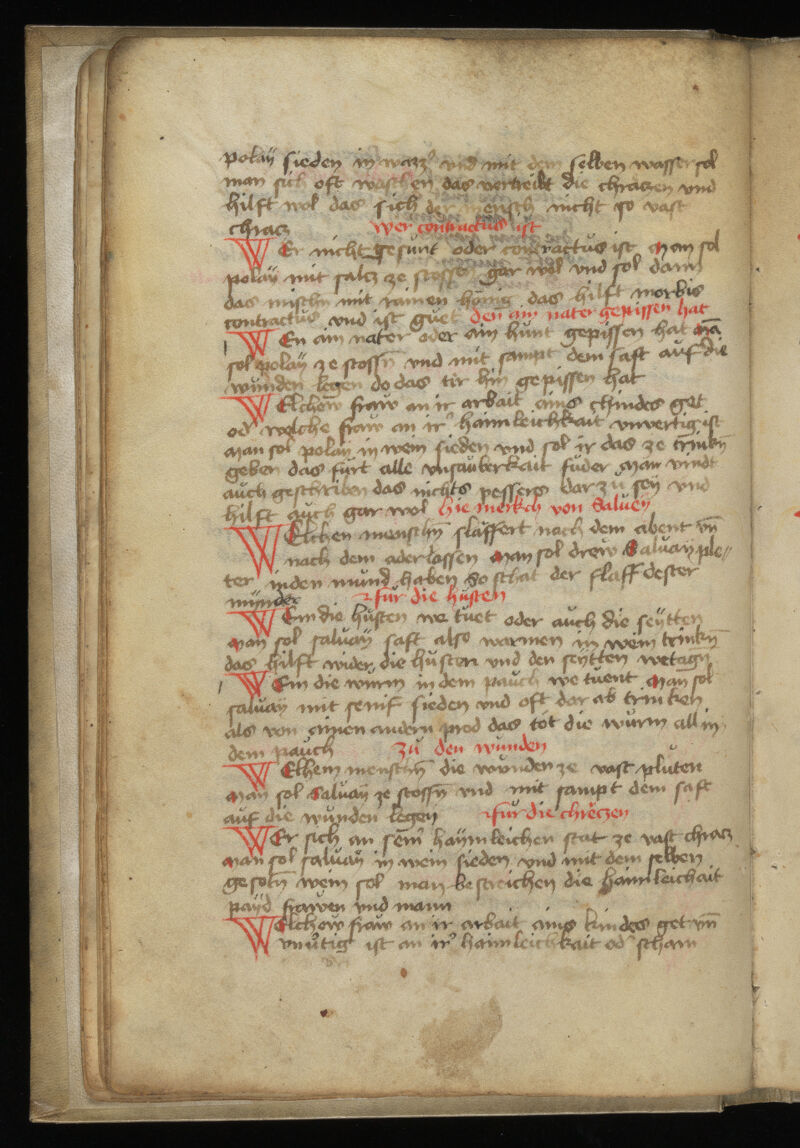 polaÿ sieden in wazz᷑ vnd mit dem selben wasser sol
man sich oft waschen das vertreibt die chraczen vnd
hilft wol das sich der mensch nicht so vast
chracz wer contractus ist
WEr nicht gesunt oder contractus ist Man sol
polaÿ mit salcz ze stossen gar wol vnd sol dann
das mischn mit ramen honig das hilft morbis
contractus vnd ist guet den ain nater gepissen hat
WEn ain nater oder ain hunt gepissen hat Mā
sol polaÿ ze stossn̄ vnd mit sampt dem saft auf die
wunden legen do das tir hin gepissen hat
WElchew fraw an ir arbait ains chindes get
od᷑ welche fraw an ir᷑ haimleichkait vnvertig ist
Man sol polaÿ in wein sieden vnd sol ir das ze trinkn̄
geben das fürt alle vnsauberkait fuder Man vindt
auch geschriben das nichts pessers dar zu seÿ vnd
hilft auch gar wol hie merkch von Salueÿ
WElchen menschn̄ slaffert nach dem abent vn̄
nach dem aderlassen Man sol drew Saluaÿ ple„
ter in den mund haben So schat der slaff dester
mÿnder für die hŭsten
WEm die hŭsten we tuet oder auch die seÿtten
Man sol saluaÿ saft also warmen in wein trinkn̄
das hilft wider die husten vnd den seÿtten wetagn̄
WEm die würm in dem pauch we tuent Man sol
saluaÿ mit senif sieden vnd oft dar ab trinken
als von ainen andern prod das tot die würm all in
dem pauch zŭ den wunden
WElhem menschn̄ die wŭnden ze vast plŭten
Man sol Saluaÿ ze stossn̄ vnd mit sampt dem saft
auf die wŭnden legen für die chreczen
WEr sich an sem᷑ haÿmleichen stat ze vast chracz
Man sol saluaÿ in wein sieden vnd mit dem selben
gesotn̄ wein sol man bestreichen die haimleichait
paÿd frawen vnd mann
WElchew fraw an ir arbait ains kindes get vn̄
an ir᷑ haimleichkait od᷑ scham